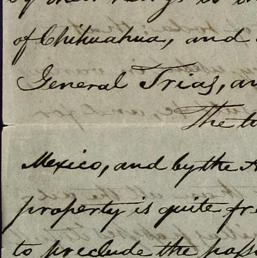 of Chihuahua, and
General Trias, an
The t
Mexico, and by the A
property is quite fre
to preclude the pass